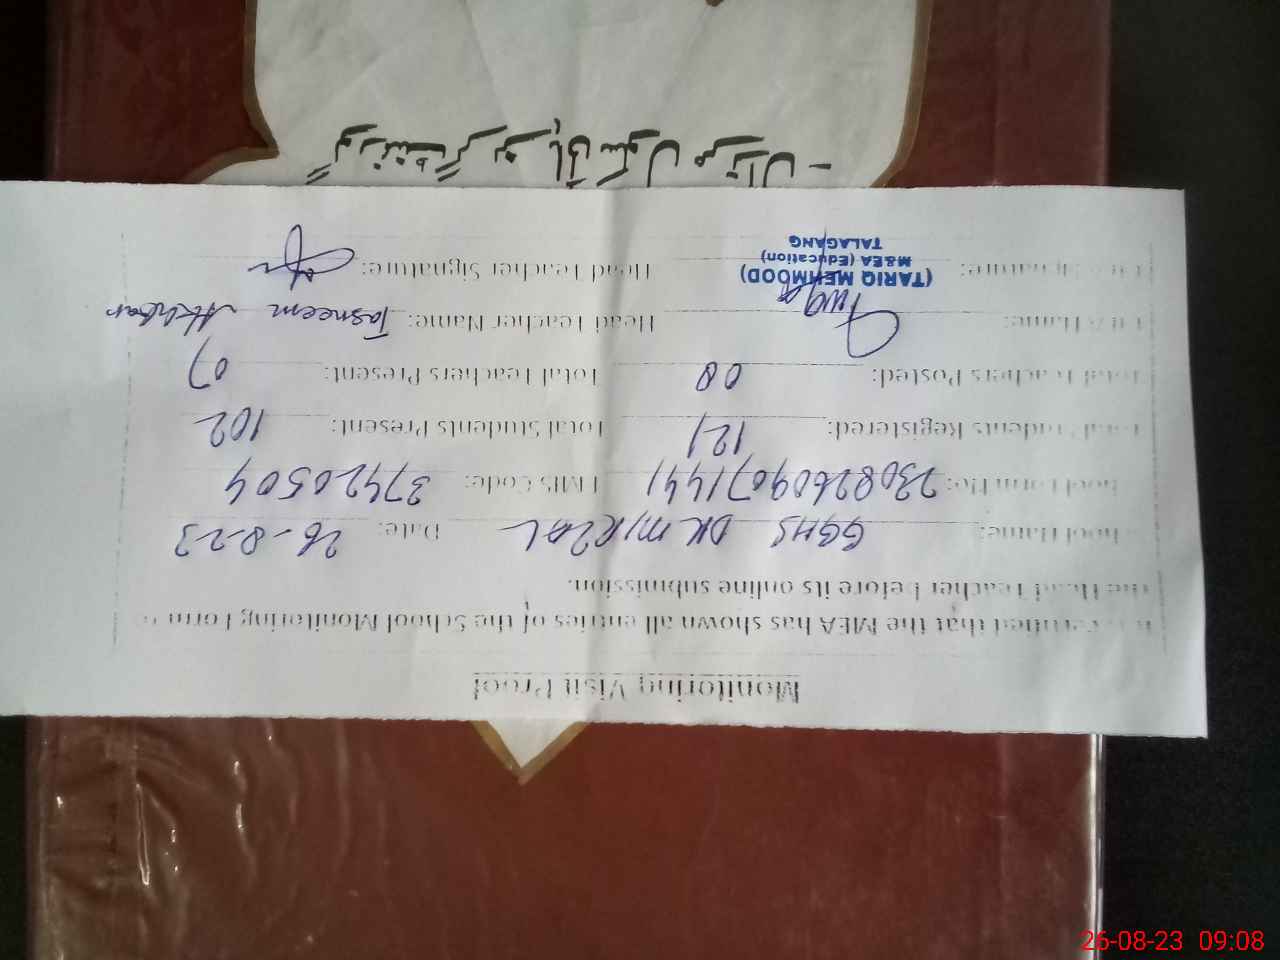 Monitoring Visit Proof
that the MEA has shown all entries of the School Monitoring Form
the Head Teacher before its online submission.
School Name: GGHS DK MIRZAL Date: 26-8-23
Form No: 23082609071441 EMIS Code: 37420504
Total Students Registered: 121 Total Students Present: 102
Total Teachers Posted: 08 Total Teachers Present: 07
Name: Head Teacher Name: Tasneem Akhtar
Signature: Head Teacher Signature:
(TARIQ MEHMOOD)
M&EA (Education)
TALAGANG
گورنمنٹ گرلز ہائی سکول
26-08-23 09:08